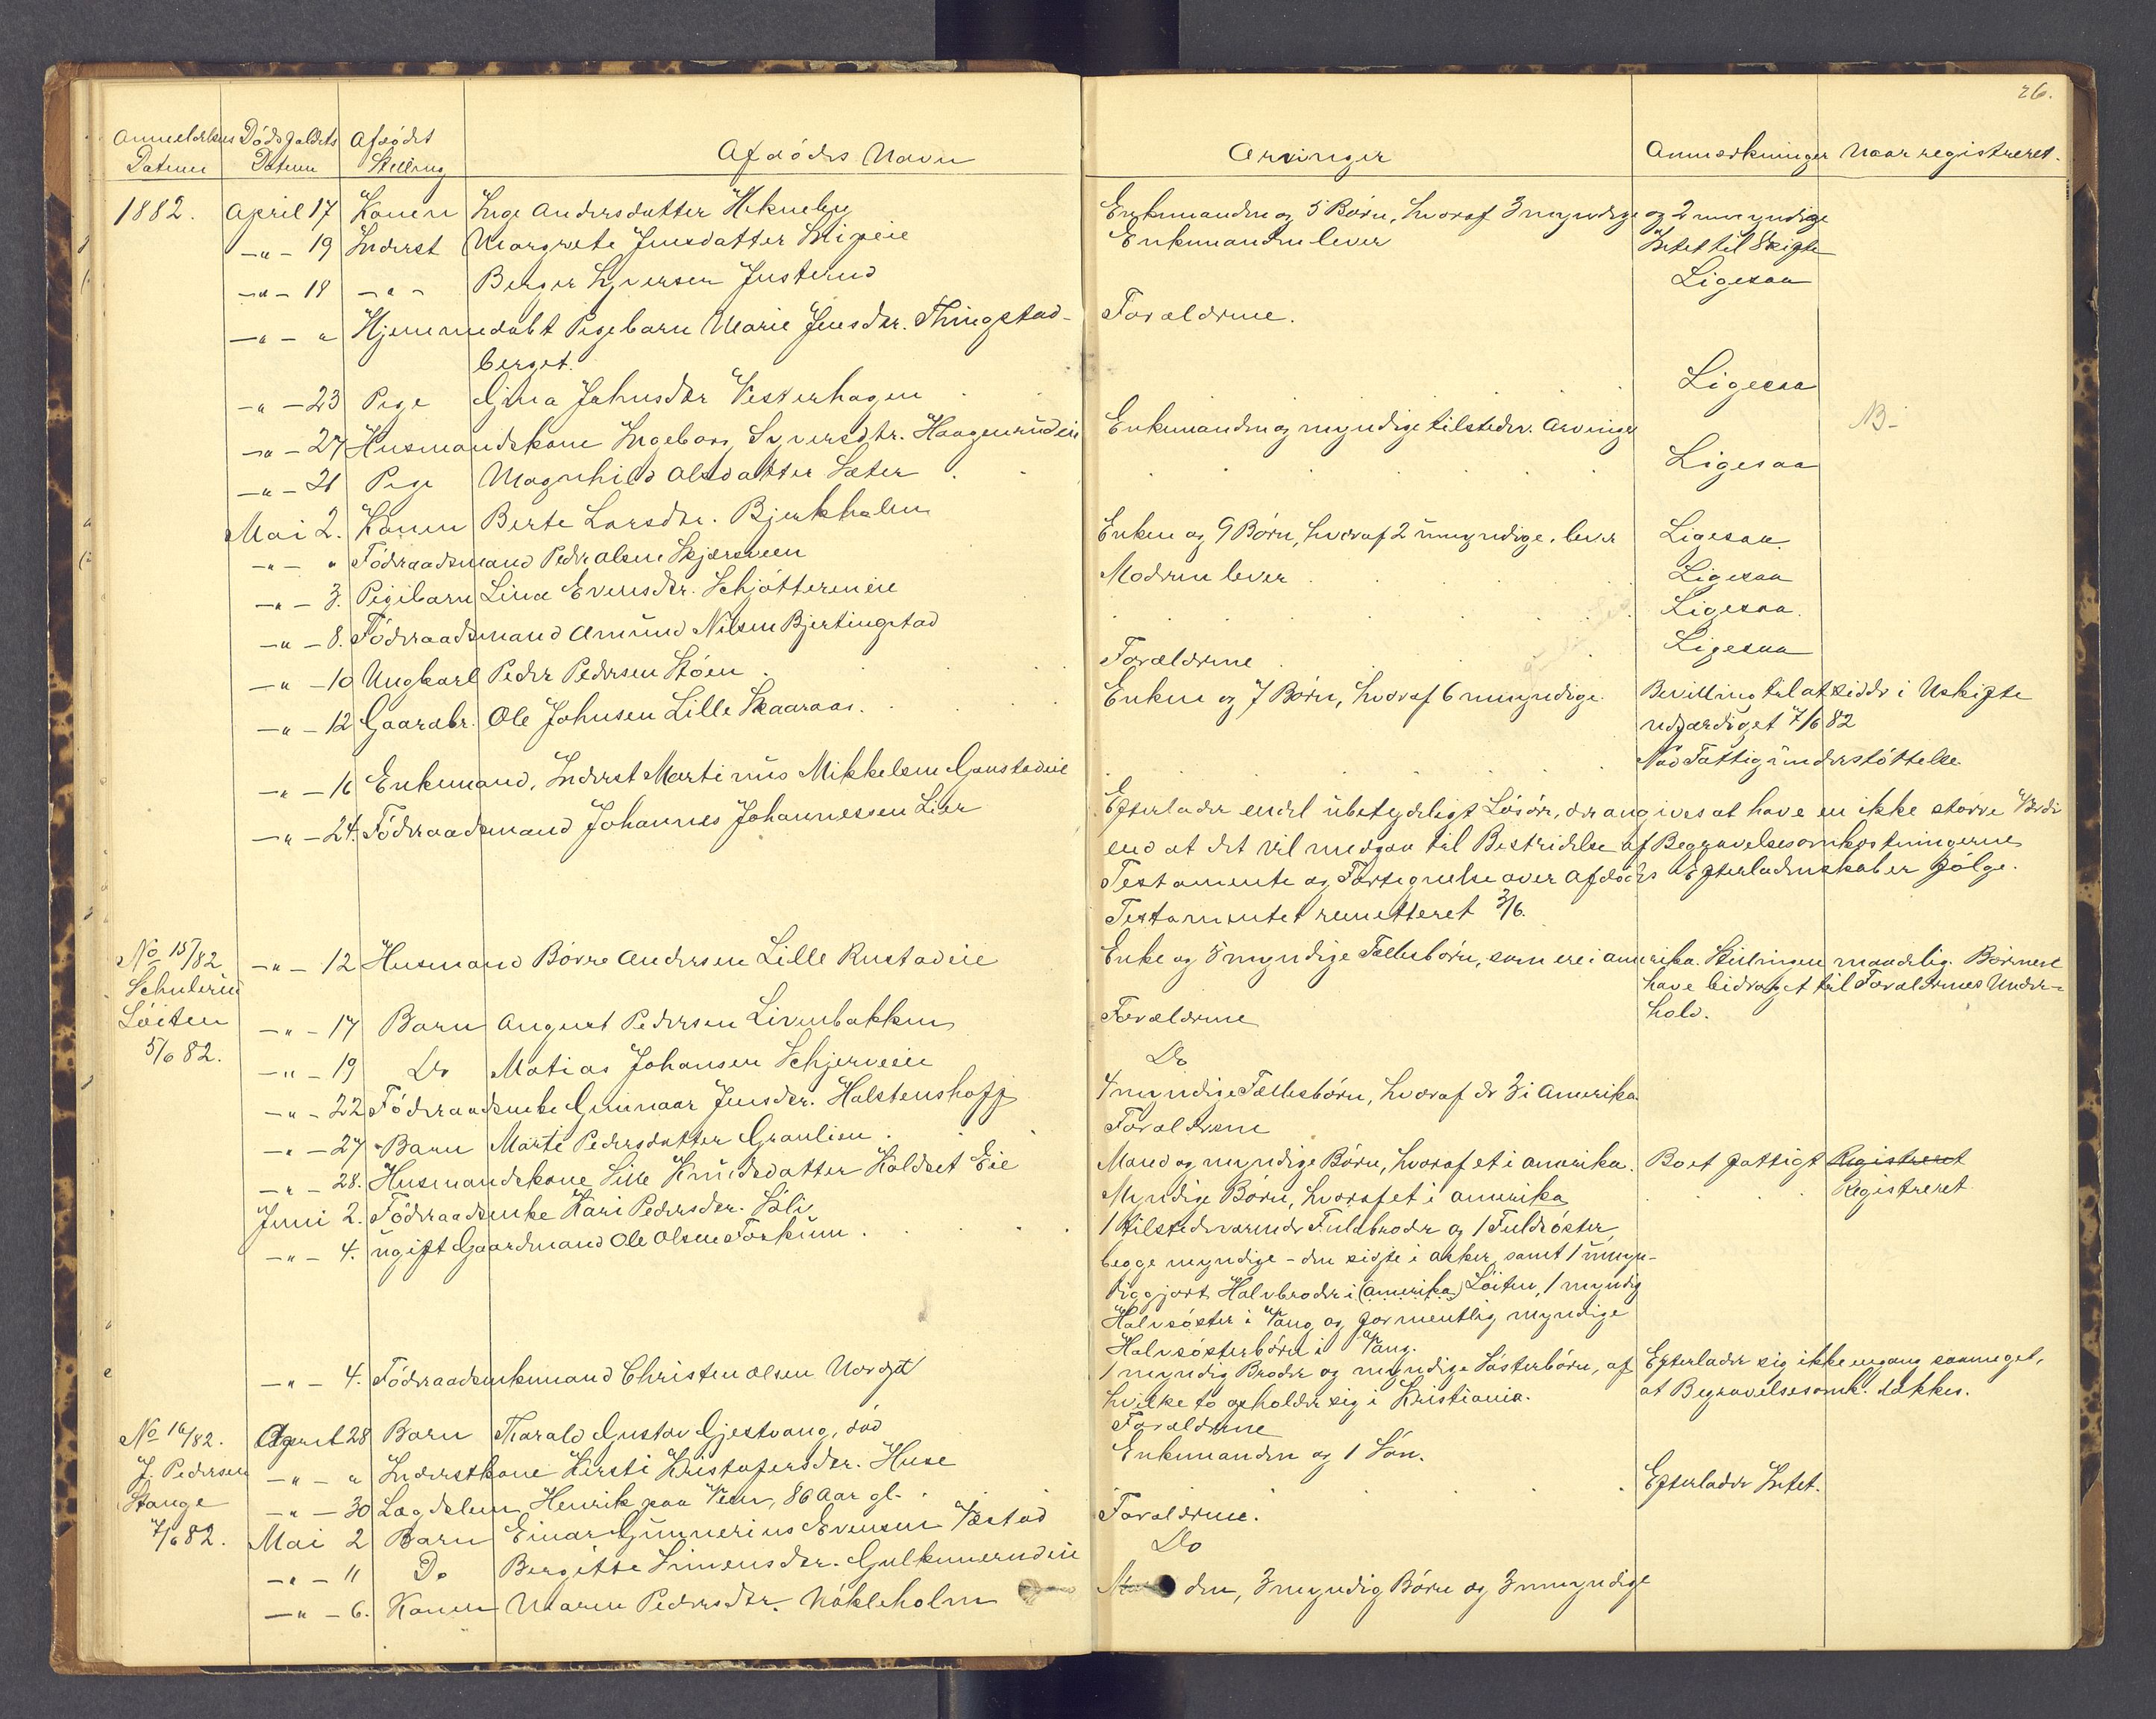 26.
Anmeldelses Dødsfaldets Afdødes
Datum Datum Stilling
Afdødes Navn
Arvinger
Anmærkninger Naar registreret.
1882. April 17 Konen Inge Andersdatter
Enkemanden og 5 Børn, hvoraf 3 myndige og 2 umyndige
-"- 19 Inderst Margrete Jensdatter
Enkemanden lever Intet til Skifte
-"- 18 -"- Berger Syversen Justerud
Ligesaa
-"- " Hjemmedøbt Pigebarn Marie Jensdr. Thingstad-
berget.
Forældrene.
-"- 23 Pige Gina Johnsdtr Vesterhagen
Ligesaa
-"- 27 Husmandskone Ingeborg Syversdtr. Haagenrudeie
Enkemanden og myndige tilstedev. Arvinger
NB-
-"- 21 Pige Magnhild Olsdatter Sæter
Ligesaa
Mai 2. Konen Berte Larsdtr. Bjerkholm
-"- " Föderaadsmand Peder Olsen Skjærsveen
Enken og 9 Børn, hvoraf 2 umyndige, lever Ligesaa
-"- 3. Pigebarn Lina Evensdtr. Schjöttereneie
Moderen lever Ligesaa
-"- 8. Föderaadsmand Amund Nilsen Bjertingstad
Ligesaa.
-"- 10 Ungkarl Peder Pedersen Stöen
Forældrene Ligesaa
-"- 12 Gaardbr. Ole Johnsen Lille Skaaraas.
Enken og 7 Børn, hvoraf 6 umyndige. Bevilling til at sidde i Uskifte
udfærdiget 7/6 82
-"- 16 Enkemand, Inderst Martinus Mikkelsen Gaustadeie
Nød Fattigunderstöttelse
-"- 24. Föderaadsmand Johannes Johannessen Lier
Efterlader endel ubetydeligt Lösöre, der angives at have en ikke större Værdi
end at det vil medgaa til Bestridelse af Begravelsesomkostningerne
Testamente og Fortegnelse over Afdödes Efterladenskaber fölge.
Testamentet remitteret 3/6.
No 15/82
Schulerud
Löiten
5/6 82.
-"- 12 Husmand Börre Andersen Lille Rustadeie
Enke og 5 myndige Fællesbörn, som ere i Amerika. Stillingen maadelig. Börnene
have bidraget til Forældrenes Under-
hold.
-"- 17 Barn August Pedersen Livenbakken
Forældrene
-"- 19 Do Matias Johansen Schjerveeie
Do
-"- 22 Föderaadsenke Gunnaar Jensdtr. Halstenshoff
4 myndige Fællesbörn, hvoraf de 3 i Amerika
-"- 27 Barn Marte Pedersdatter Graulien
Forældrene
-"- 28. Husmandskone Sille Knudsdatter Koldset Eie
Mand og myndige Börn, hvoraf et i Amerika. Boet fattigt Registreret
Juni 2. Föderaadsenke Kari Pedersdtr. Söli
Myndige Börn, hvoraf et i Amerika Registreret
-"- 4. Ugift Gaardmand Ole Olsen Torkuun
1 tilstedeværende Fuldbroder og 1 Fuldsöster,
begge myndige - den sidste i Asker, samt 1 umyn-
diggjort Halvbroder i (Amerika) Löiten, 1 myndig
Halvsöster i Vang og formentlig myndige
Halvsösterbörn i Vang.
-"- 4. Föderaadsenkemand Christen Olsen Nordgt
1 myndig Broder og myndige Sösterbörn, af
hvilke to opholder sig i Kristiania.
Efterlader sig ikke engang saameget,
at Begravelsesomk. dækkes.
No 16/82.
J. Pedersen
Stange
7/6 82.
April 28 Barn Tharald Gustav Gjestvang, död
Forældrene
-"- " Inderstkone Kersti Kristofersdtr. Huse
Enkemanden og 1 Sön.
-"- 30 Lægdslem Henrik paa Veen, 86 Aar gl.
Efterlader Intet.
Mai 2 Barn Einar Gunnerius Evensen Vestad
Forældrene.
-"- 11 Do Bergitte Simensdtr. Gulkmerudeie
Do
-"- 6. Konen Maren Pedersdtr. Nökleholm
den, 3 myndig Börn og 3 umyndige